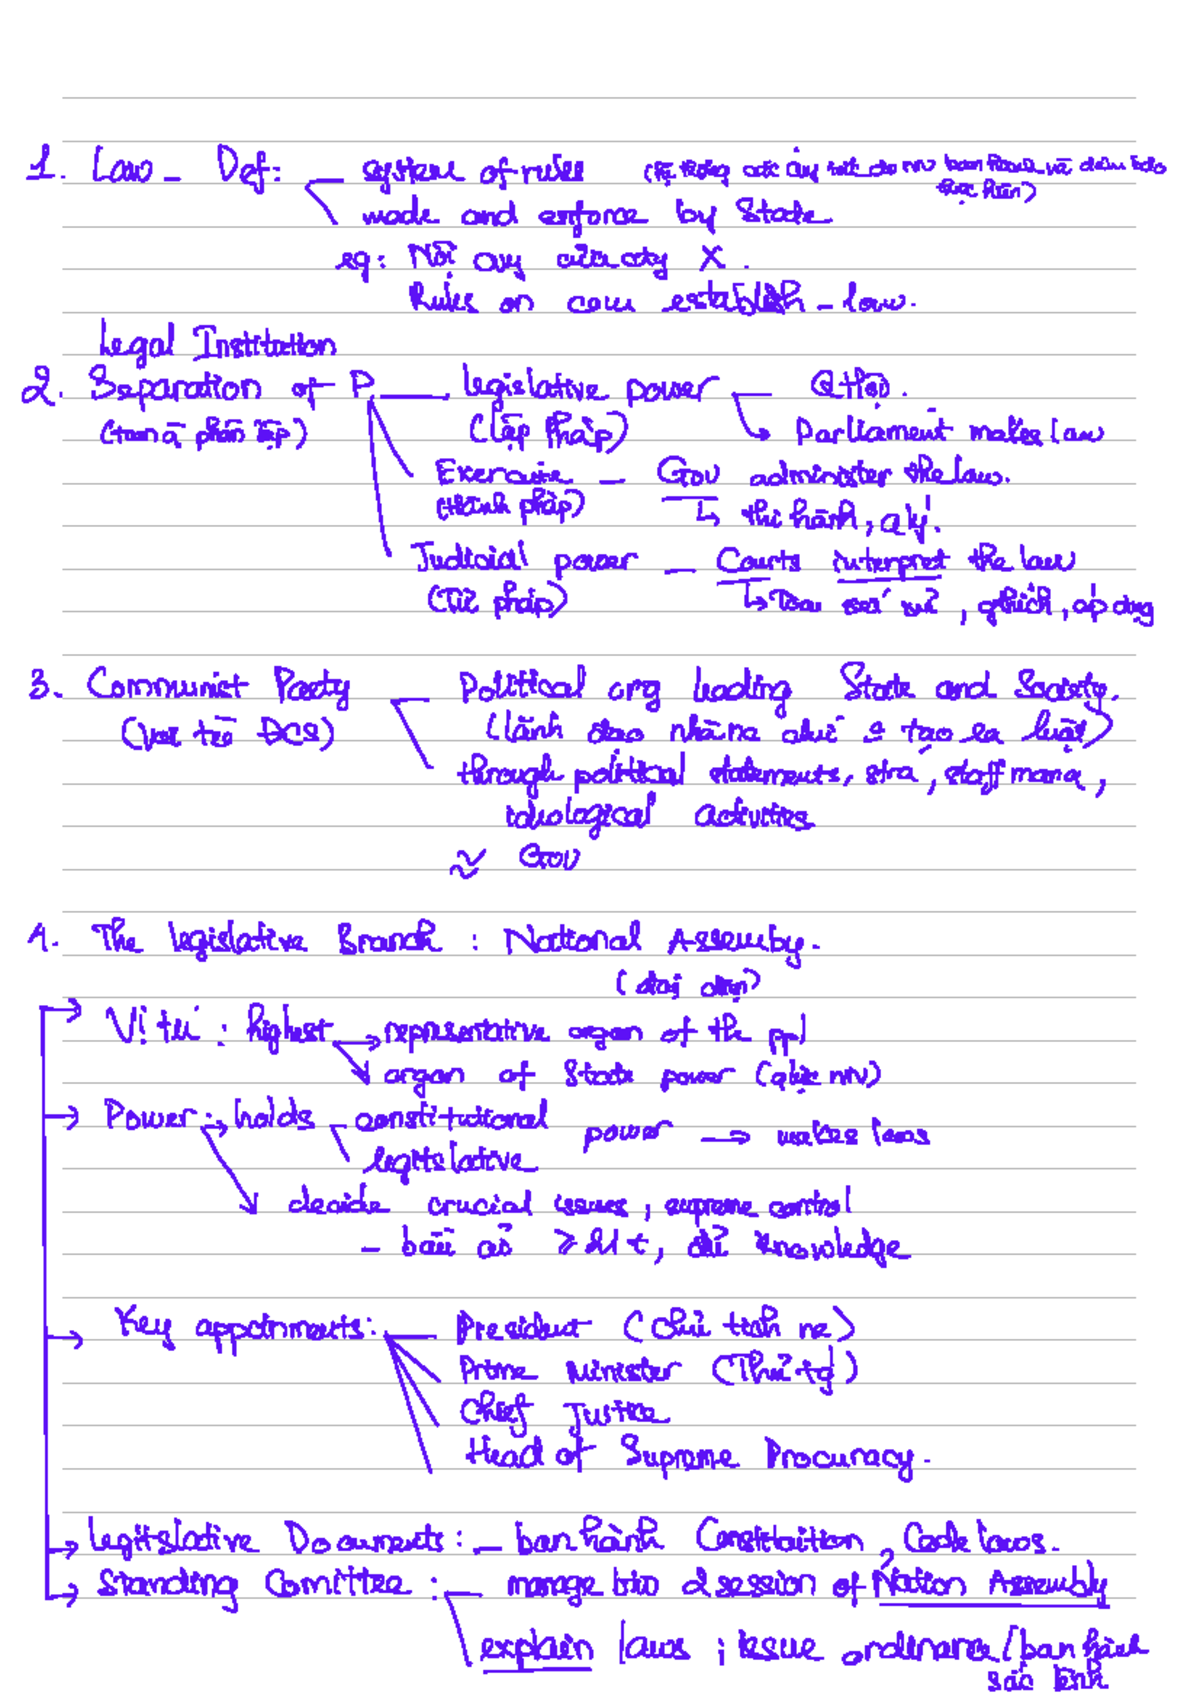 1. Law - Def: - system of rules (hệ thống các quy tắc do NN ban hành và đảm bảo
thực hiện)
made and enforce by State
eg: Nội quy của cty X.
Rules on com establish - law.
Legal Institation
2. Separation of P. legislative power - Qhội.
(tam q phân lập) (lập Pháp) ↳ Parliament makes law
Execute - Gov administer the law.
(hành pháp) ↳ thi hành, qlý.
Judicial power - Courts interpret the law
(Tư pháp) ↳ Tòa xét xử, gthích, áp dụng
3. Communist Party - Political org leading State and Society.
(vai trò ĐCS) (lãnh đạo nhà nc chứ ko tạo ra luật)
through political statements, stra, staff mana,
ideological activities
≈ Gov
4. The legislative Branch: National Assemby.
(đại diện)
→ Vị trí: highest → representative organ of the ppl
organ of State power (qlực NN)
→ Power: → holds - constitutional power → makes laws
legitslative
decide crucial issues, supreme control
- bầu cử ≥ 21t, đủ knowledge
→ Key appoinments: President (Chủ tịch nc)
Prime Minister (Thủ tg)
Chief Justice
Head of Supreme Procuracy.
→ legitslative Documents: - ban hành Constituition, Code laws.
→ Standing Comittee: - manage btw 2 session of Nation Assembly
explain laws; issue ordinance (ban hành
sắc lệnh